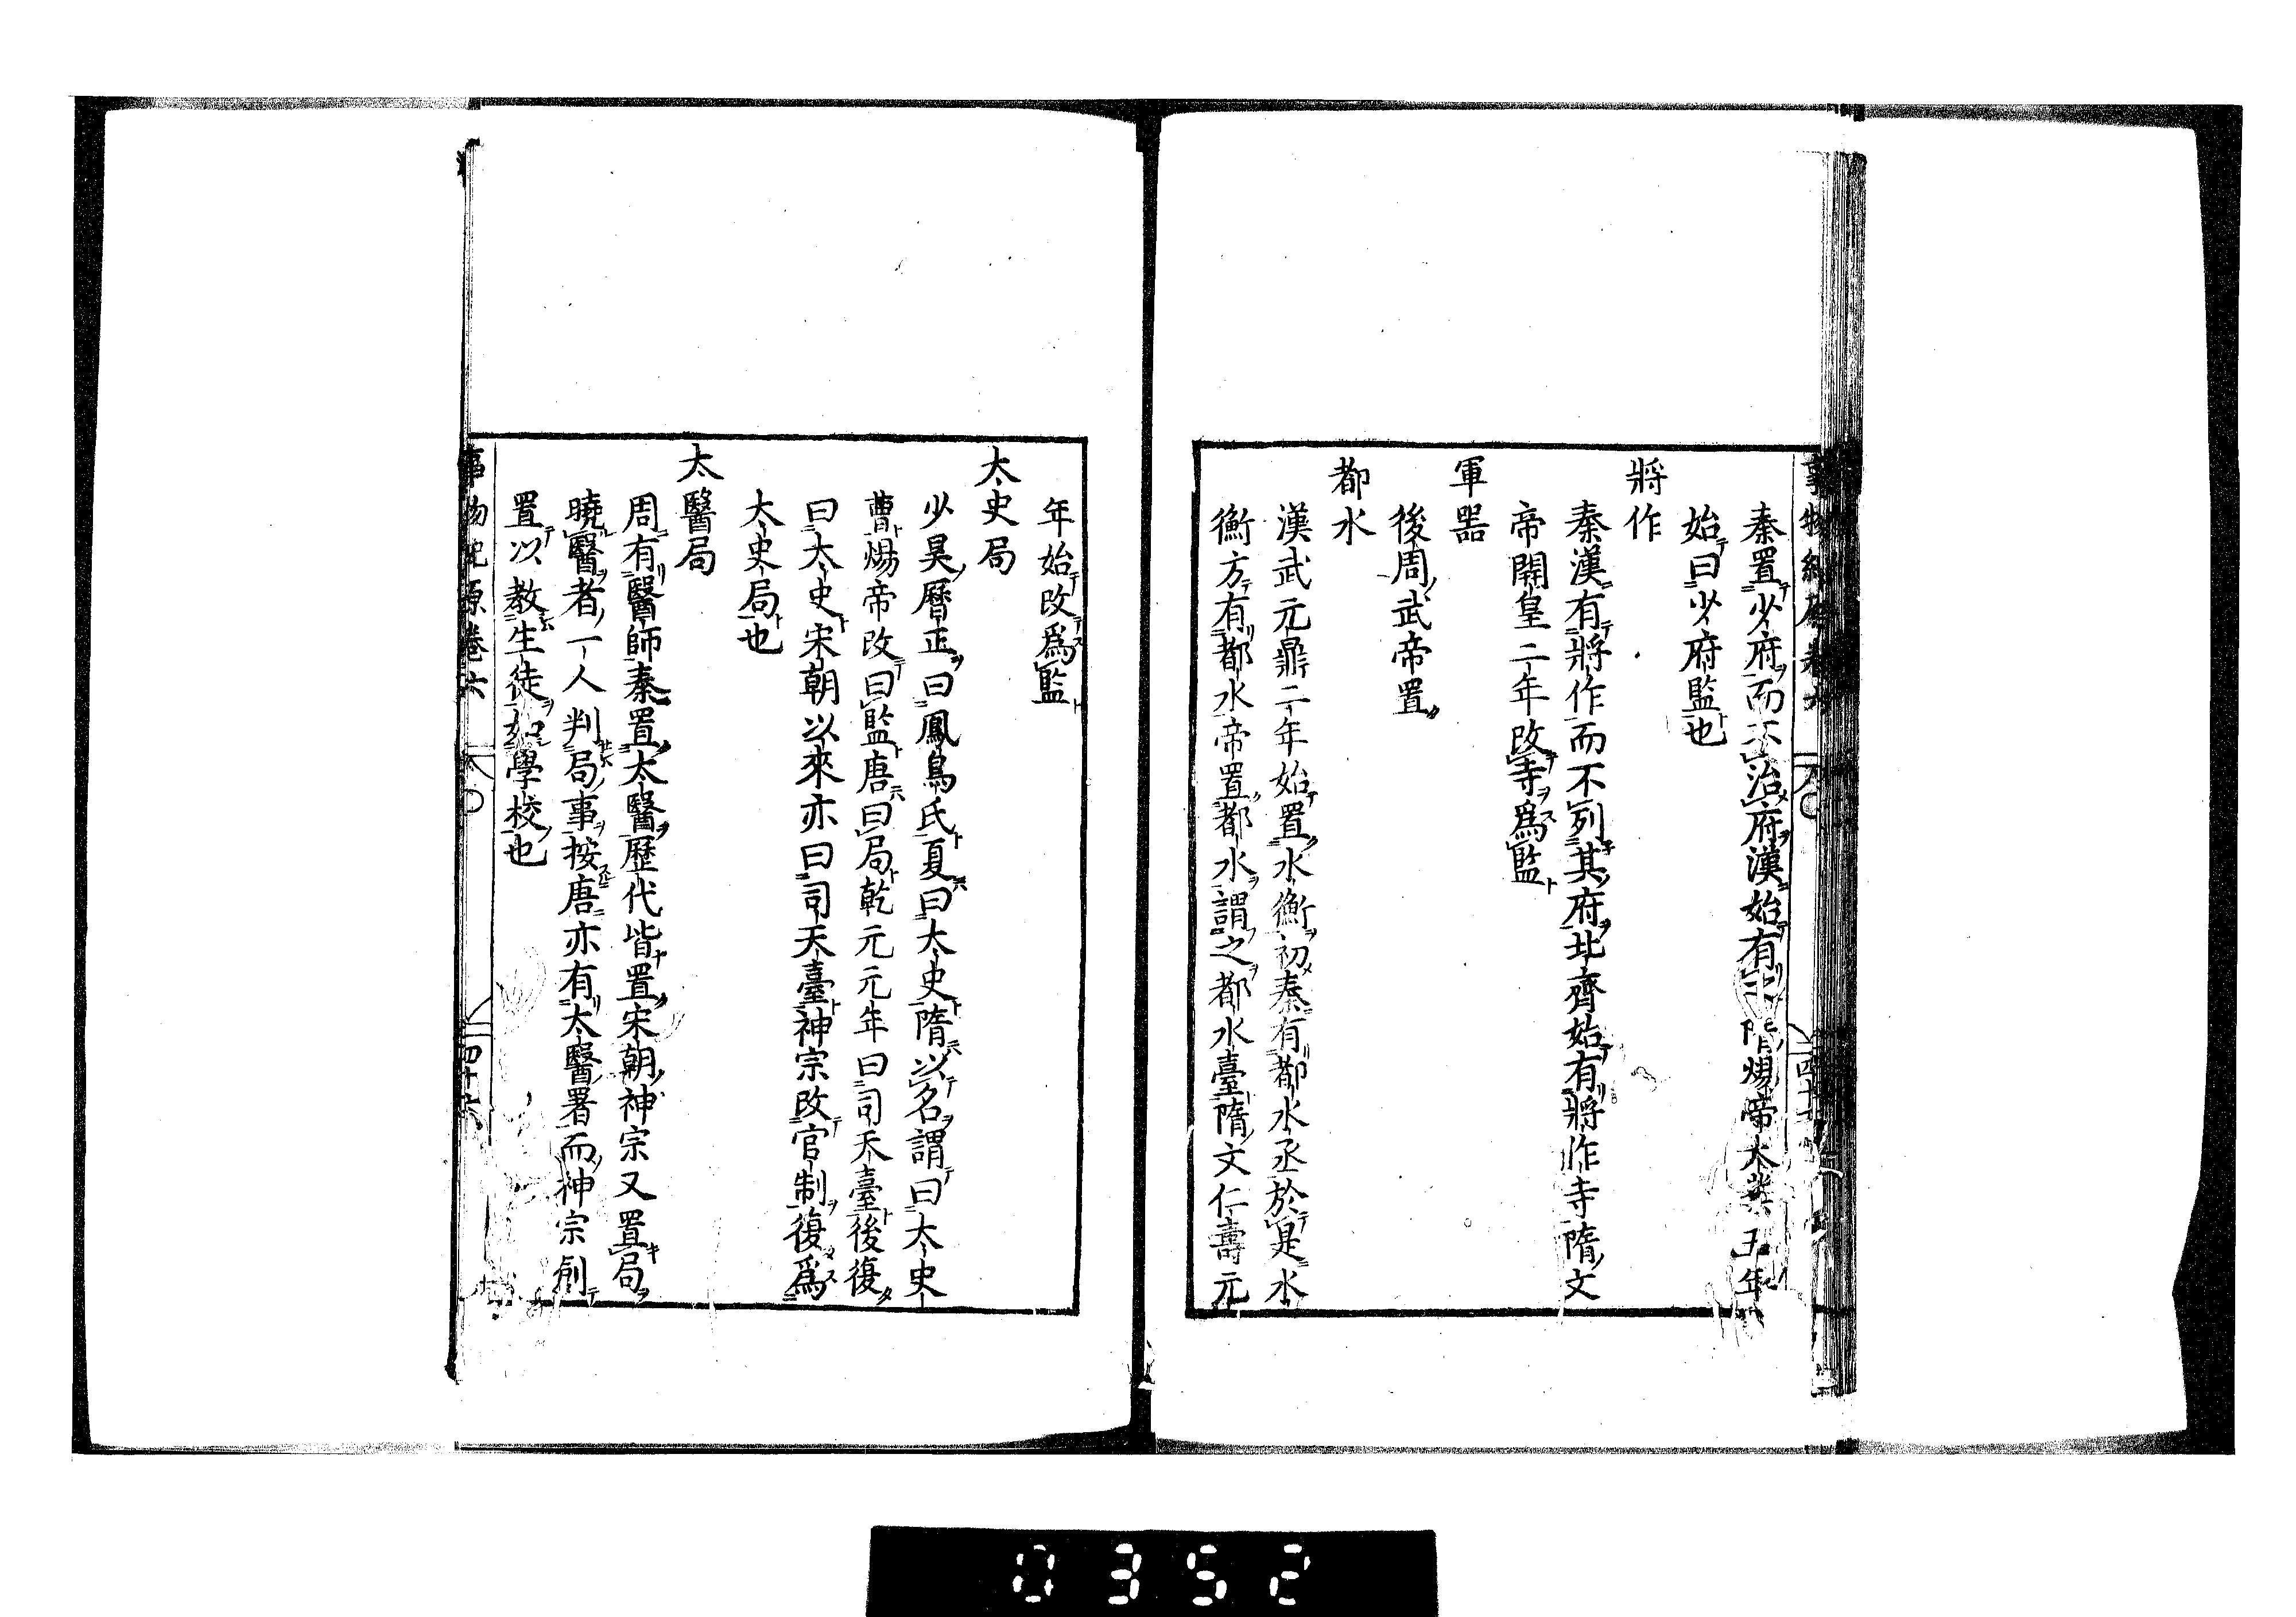 秦置少府而不治府漢始有之隋煬帝大業五年
始曰少府監也
將作
秦漢有將作而不列其府北齊始有將作寺隋文
帝開皇二年改寺爲監
軍噐
後周武帝置
都水
漢武元鼎二年始置水衡初秦有都水丞於是水
衡方有都水帝置都水謂之都水臺隋文仁壽元
年始改爲監
太史局
少昊曆正曰鳳鳥氏夏曰太史隋以名謂曰太史
曹煬帝改曰監唐曰局乾元元年曰司天臺後復
曰太史宋朝以來亦曰司天臺神宗改官制復爲
太史局也
太醫局
周有醫師秦置太醫歷代皆置宋朝神宗又置局
曉醫者一人判局事按唐亦有太醫署而神宗創
置以教生徒如學校也
事物紀原卷六
四十六
0352